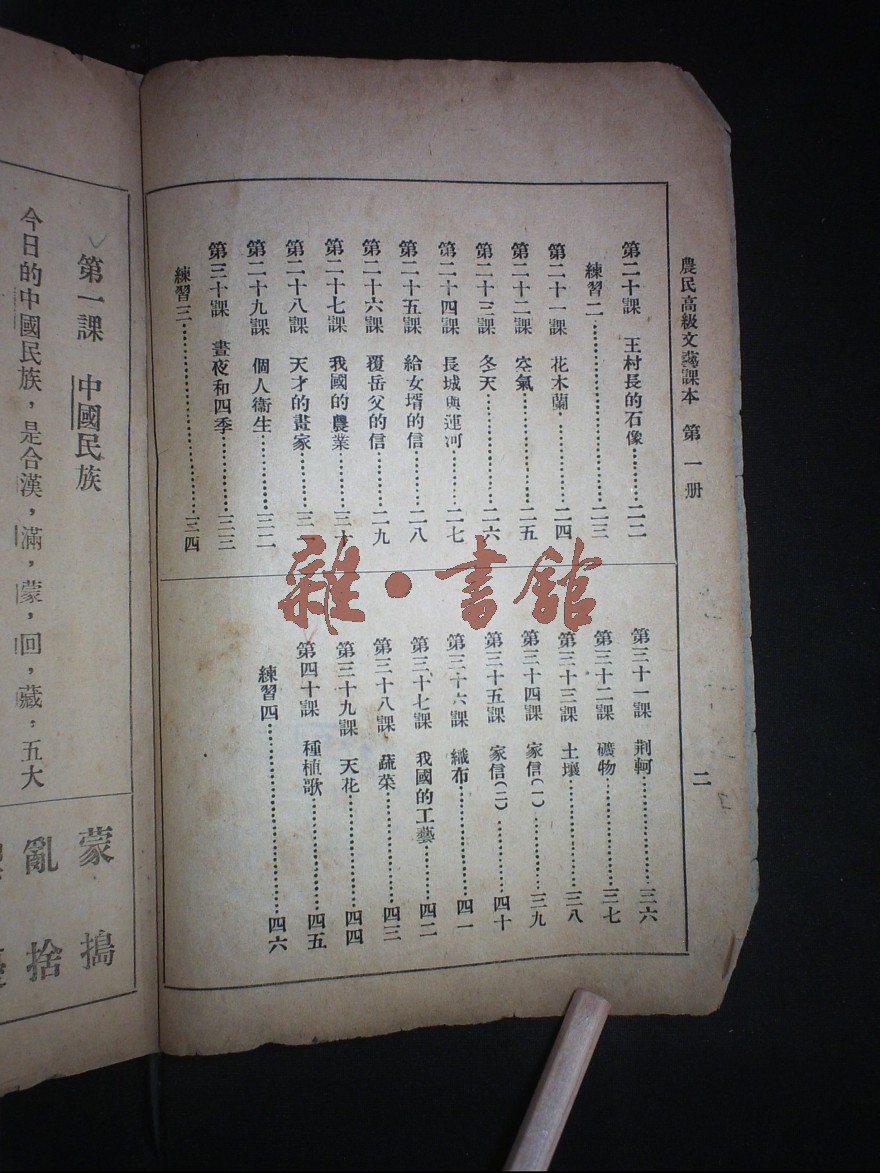 農民高級文藝課本 第一册
二
第二十課 王村長的石像………二二
練習二………二三
第二十一課 花木蘭………二四
第二十二課 空氣………二五
第二十三課 冬天………二六
第二十四課 長城與運河………二七
第二十五課 給女壻的信………二八
第二十六課 覆岳父的信………二九
第二十七課 我國的農業………三十
第二十八課 天才的畫家………三一
第二十九課 個人衞生………三二
第三十課 晝夜和四季………三三
練習三………三四
第三十一課 荆軻………三六
第三十二課 礦物………三七
第三十三課 土壤………三八
第三十四課 家信(一)………三九
第三十五課 家信(二)………四十
第三十六課 織布………四一
第三十七課 我國的工藝………四二
第三十八課 蔬菜………四三
第三十九課 天花………四四
第四十課 種植歌………四五
練習四………四六
雜·書館
第一課 中國民族
今日的中國民族，是合漢，滿，蒙，回，藏，五大
蒙 搗
亂 捨